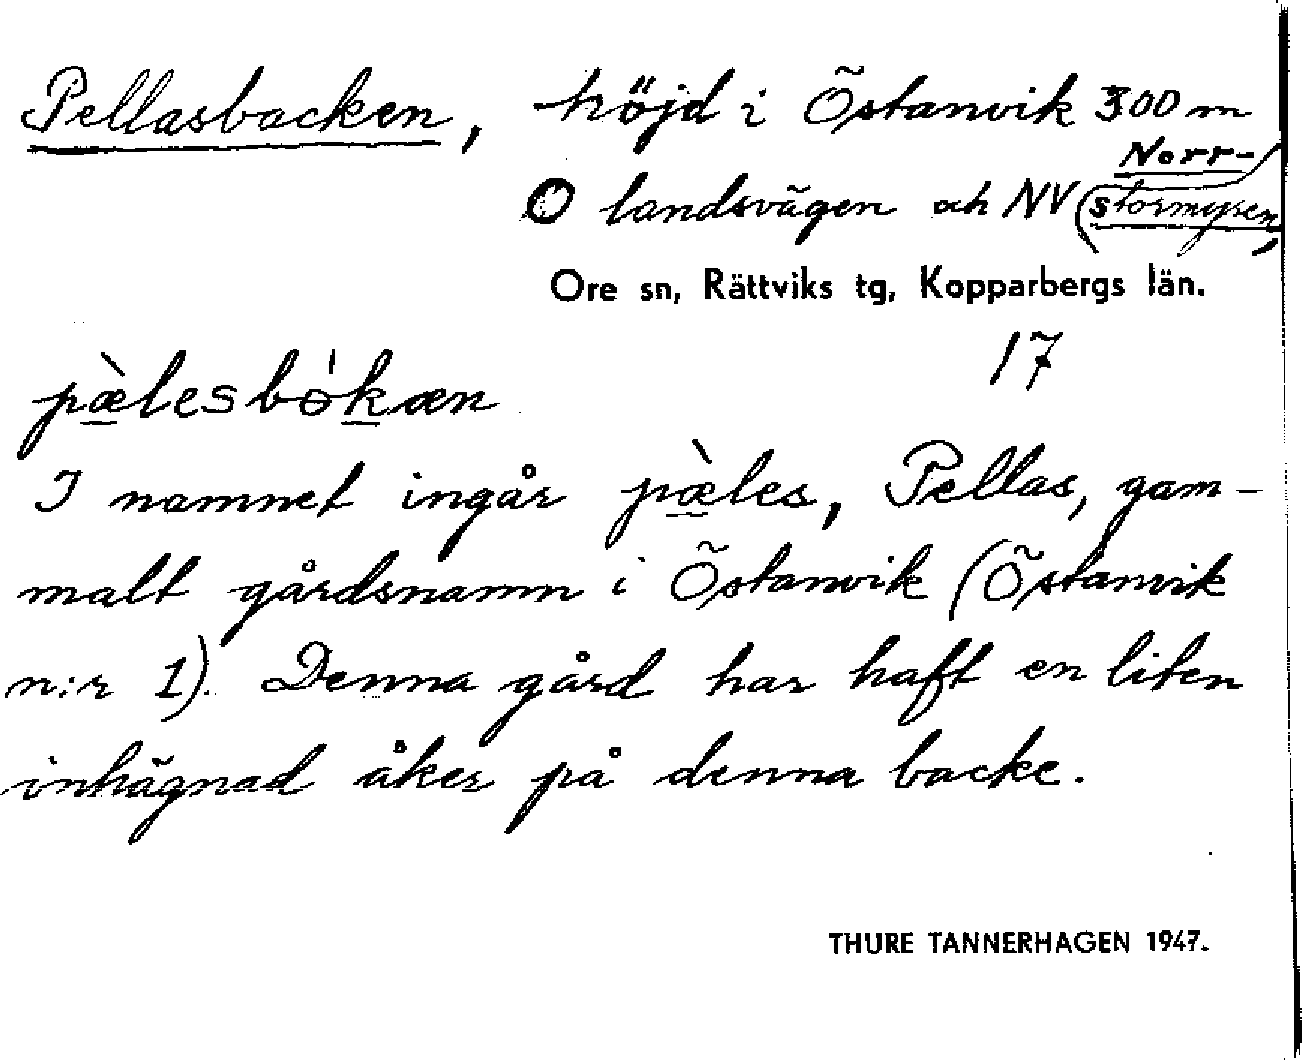 Pellasbacken, höjd i Östanvik 300 m
Norr-
O landsvägen och NV (stormyren,
Ore sn, Rättviks tg, Kopparbergs län.
17
pæ̀lesbókæn
I namnet ingår pæ̀les, Pellas, gam-
malt gårdsnamn i Östanvik (Östanvik
n:r 1). Denna gård har haft en liten
inhägnad åker på denna backe.
THURE TANNERHAGEN 1947.